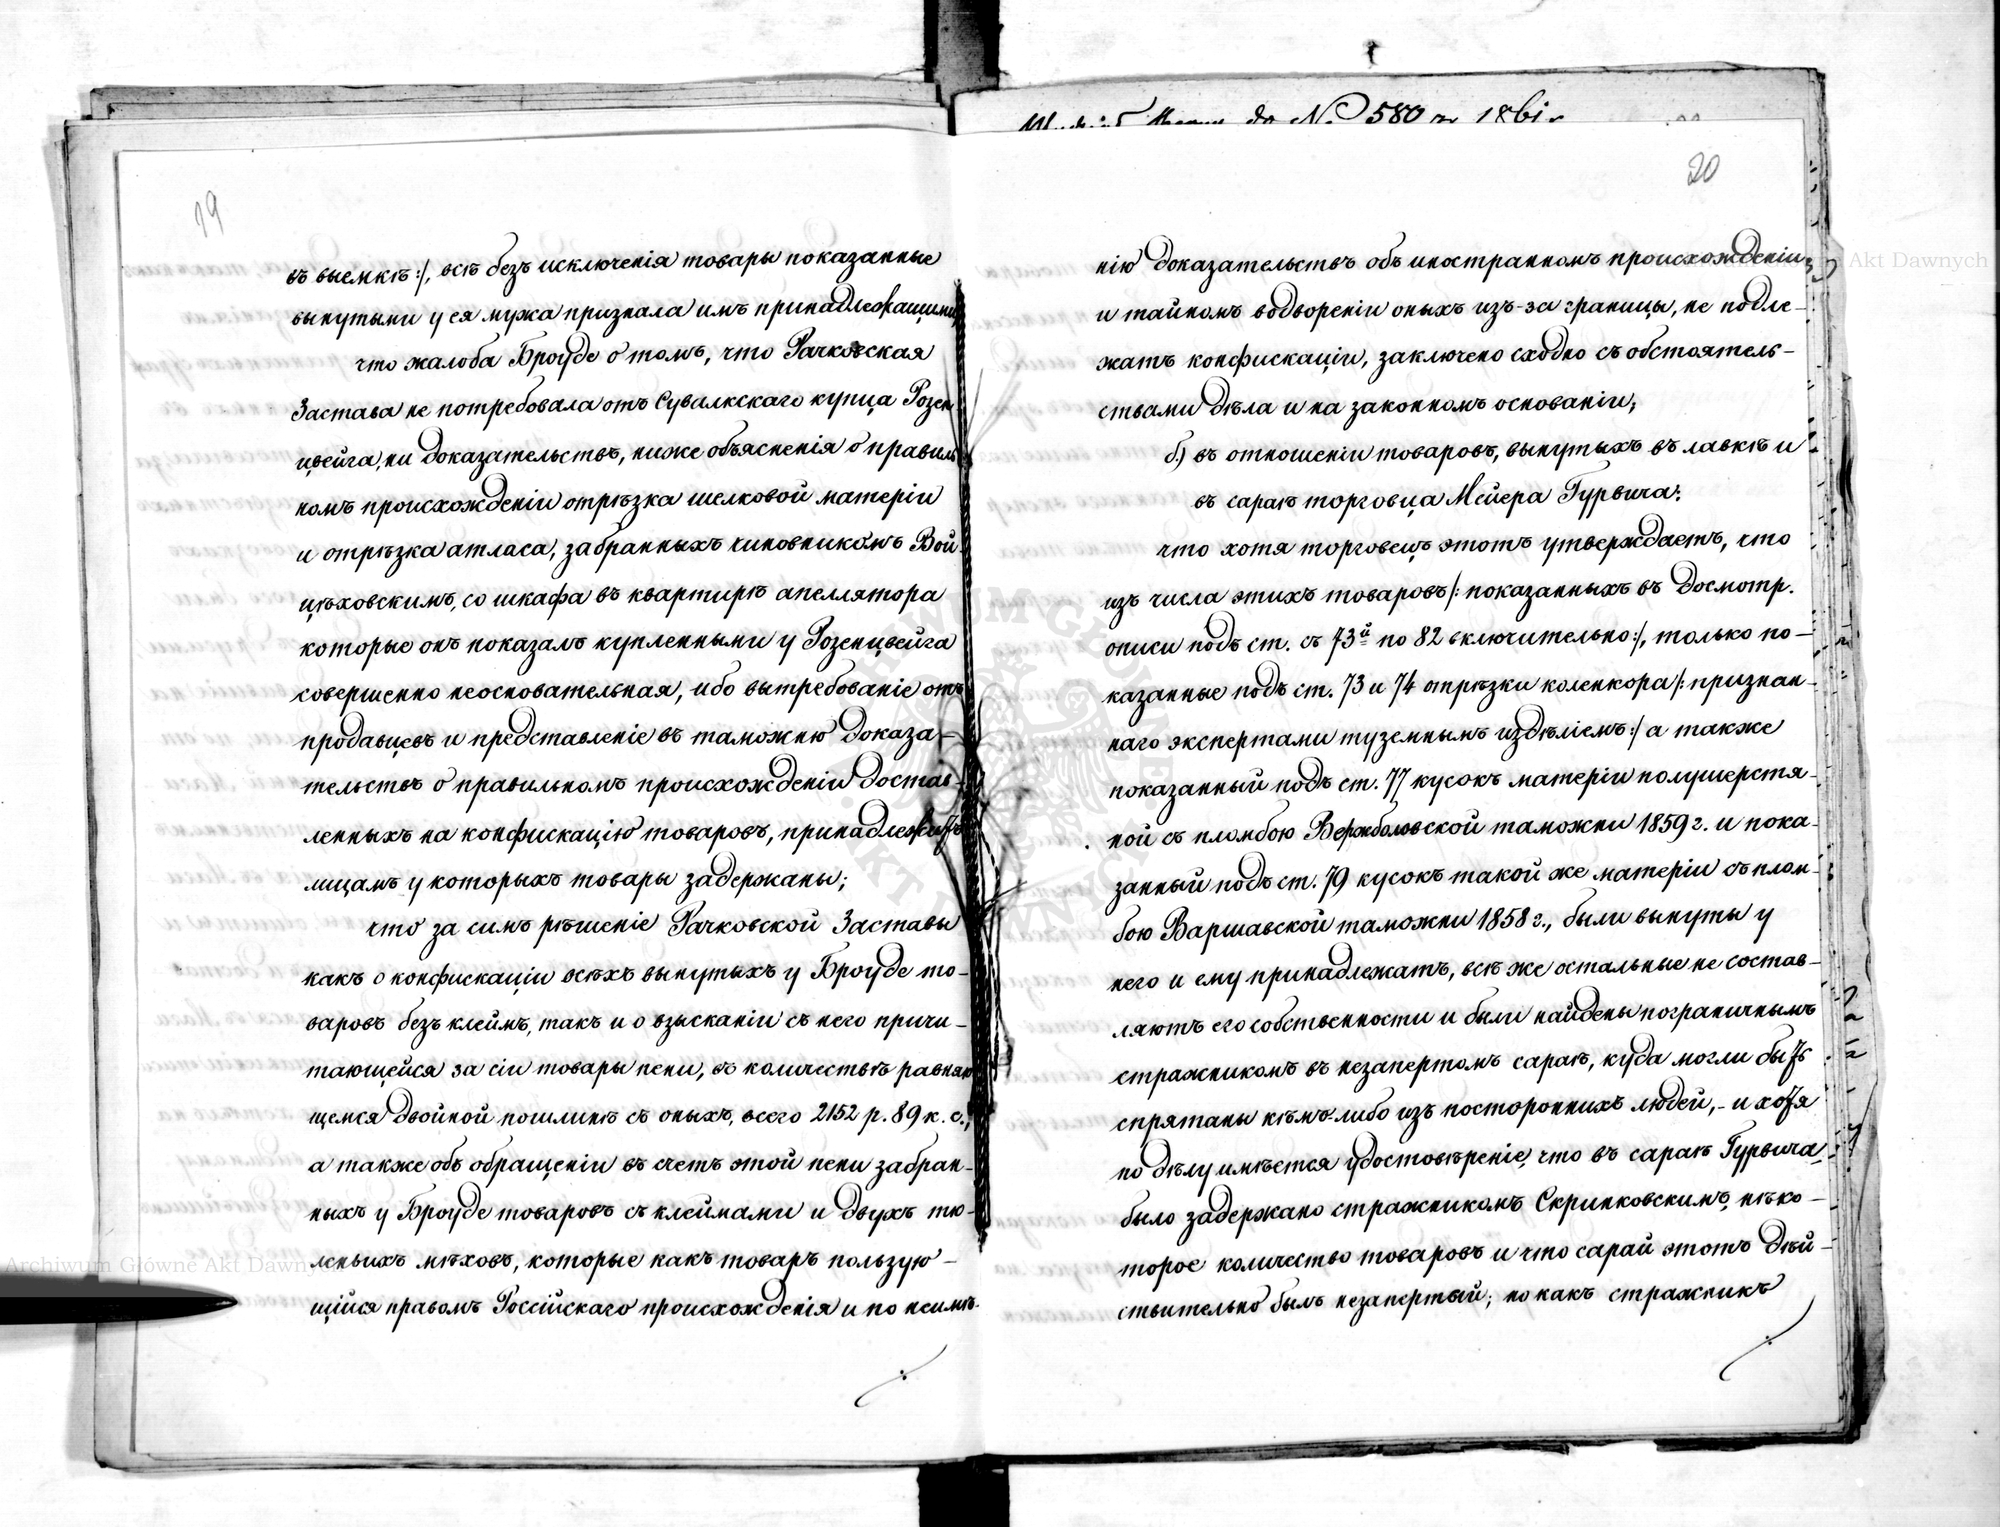 19
въ выемкѣ:/, всѣ безъ исключенія товары показанные
вынутыми у ея мужа признала имъ принадлежащими
что жалоба Броуде о томъ, что Рачковская
Застава не потребовала отъ Сувалкскаго купца Розен
цвейга, ни доказательствъ, ниже объясненія о правиль
номъ происхожденіи отрѣзка шелковой матеріи
и отрѣзка атласа, забранныхъ чиновникомъ Вой
цѣховскимъ, со шкафа въ квартирѣ апеллятора
которые онъ показалъ купленными у Розенцвейга
совершенно неосновательная, ибо вытребованіе отъ
продавцевъ и представленіе въ таможню доказа-
тельствъ о правильномъ происхожденіи достав-
ленныхъ на конфискацію товаровъ, принадлежитъ
лицамъ у которыхъ товары задержаны;
что за симъ рѣшеніе Рачковской Заставы
какъ о конфискаціи всѣхъ вынутыхъ у Броуде то-
варовъ безъ клеймъ, такъ и о взысканіи съ него причи-
тающейся за сіи товары пени, въ количествѣ равняю
щемся двойной пошлинѣ съ оныхъ, всего 2152 р. 89 к. с.,
а также объ обращеніи въ счетъ этой пени забран-
ныхъ у Броуде товаровъ съ клеймами и двухъ тю-
леньихъ мѣховъ, которые какъ товаръ пользую-
щійся правомъ Россійскаго происхожденія и по неимѣ-
до № 580 1861
20
нію доказательствъ объ иностранномъ происхожденіи
и тайномъ водвореніи оныхъ изъ-за границы, не подле-
жатъ конфискаціи, заключено сходно съ обстоятель-
ствами дѣла и на законномъ основаніи;
б.) въ отношеніи товаровъ, вынутыхъ въ лавкѣ и
въ сараѣ торговца Мейера Гурвича:
что хотя торговецъ этотъ утверждаетъ, что
изъ числа этихъ товаровъ/: показанныхъ въ Досмотр.
описи подъ ст. съ 73й по 82 включительно:/, только по-
казанные подъ ст. 73 и 74 отрѣзки коленкора/: признан-
наго экспертами туземнымъ издѣліемъ:/ а также
показанный подъ ст. 77 кусокъ матеріи полушерстя-
ной съ пломбою Вержболовской таможни 1859 г. и пока-
занный подъ ст. 79 кусокъ такой же матеріи съ плом-
бою Варшавской таможни 1858 г., были вынуты у
него и ему принадлежатъ, всѣ же остальные не состав-
ляютъ его собственности и были найдены пограничнымъ
стражникомъ въ незапертомъ сараѣ, куда могли быть
спрятаны кѣмъ-либо изъ постороннихъ людей,- и хотя
по дѣлу имѣется удостовѣреніе, что въ сараѣ Гурвича
было задержано стражникомъ Скринковскимъ, нѣко-
торое количество товаровъ и что сарай этотъ дѣй-
ствительно былъ незапертый; но какъ стражникъ
Archiwum Główne Akt Dawnych
Akt Dawnych